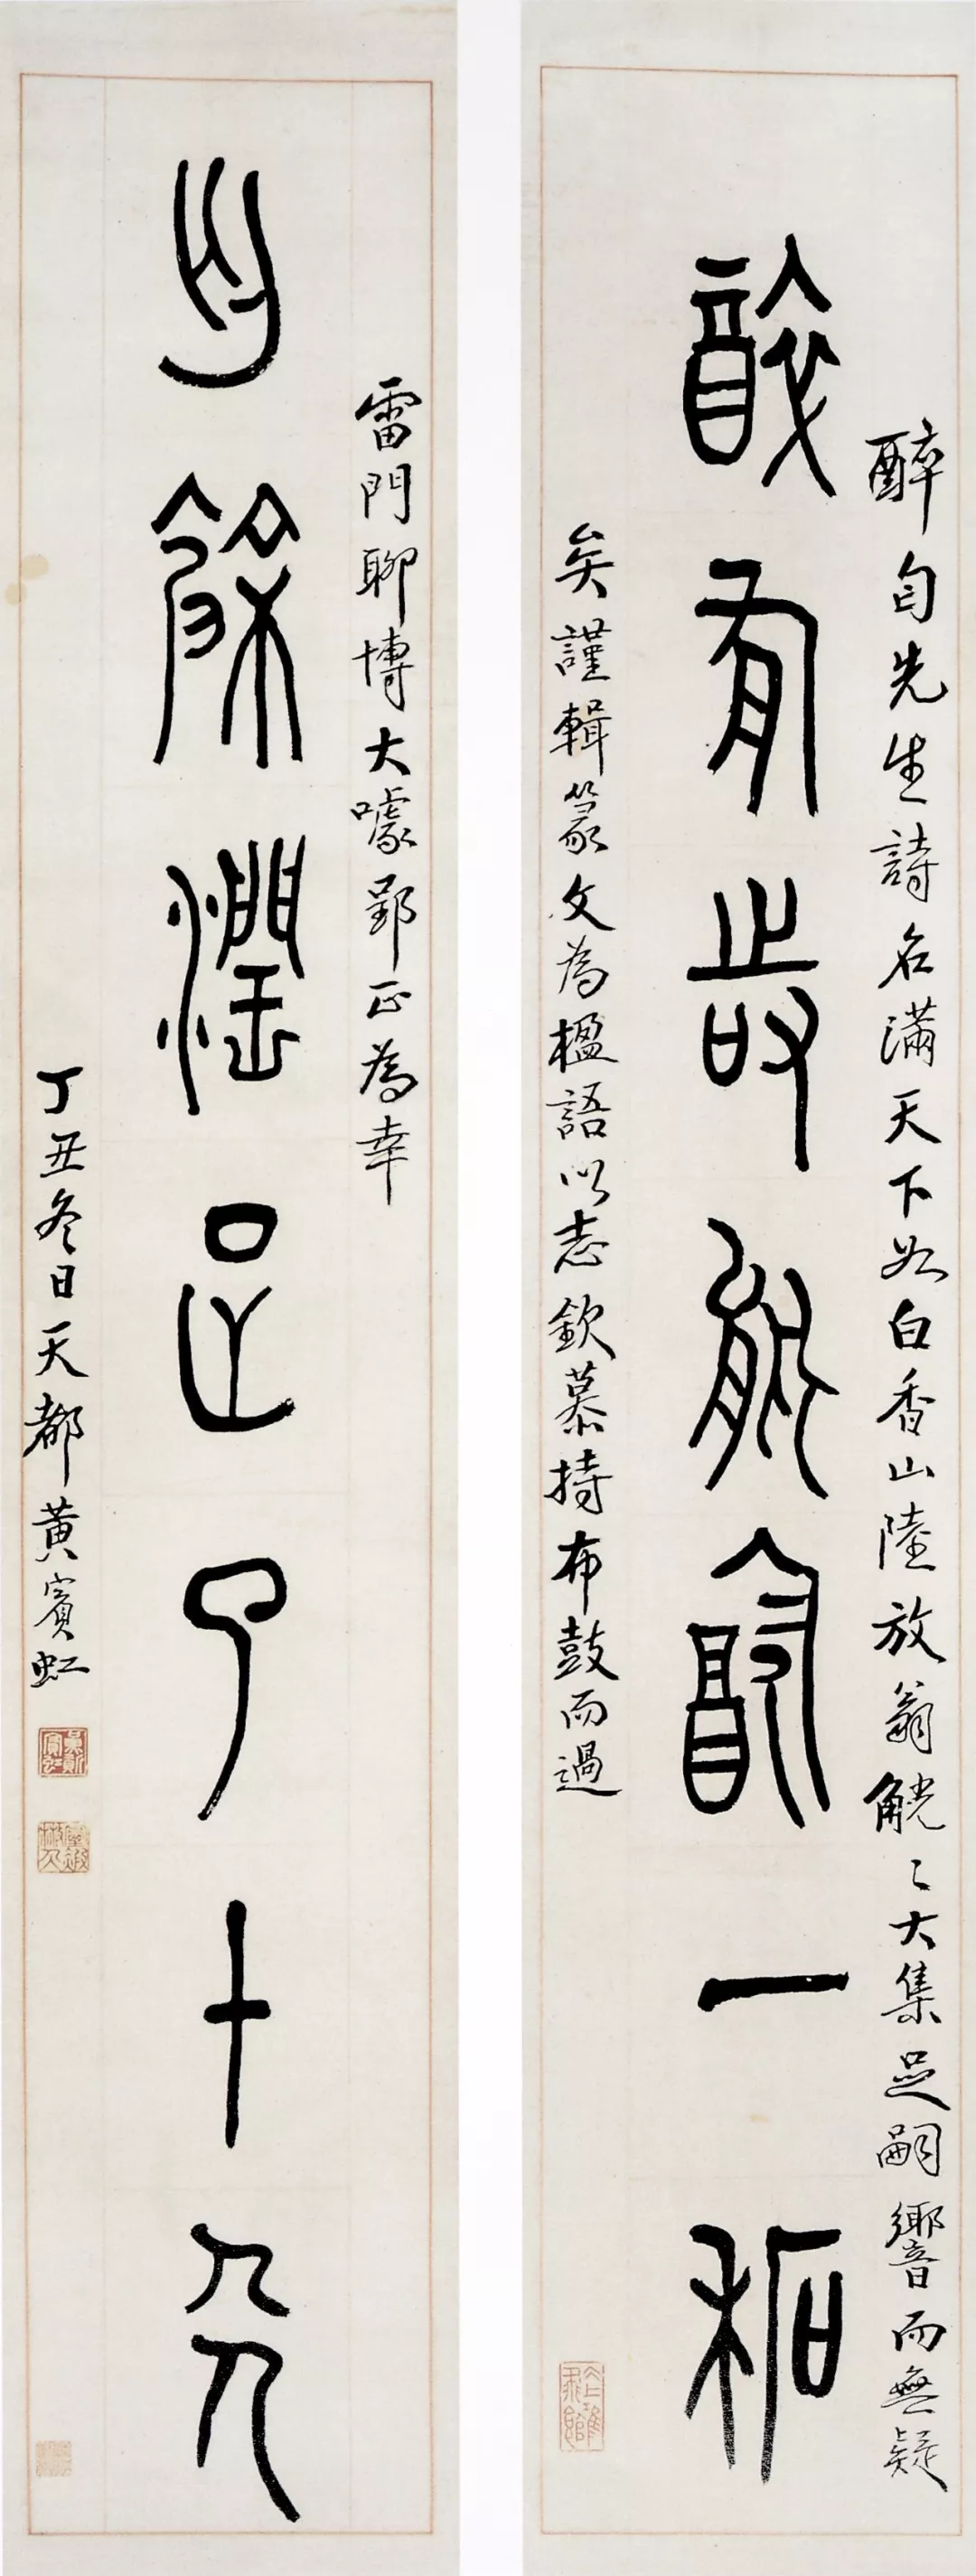 醉先生詩名滿天下如白香山陸放翁觥〻大集足嗣響而無疑
有故能一䄷
矣謹輯篆文為楹語以志欽慕持布鼓而過
雷門聊博大噱郢正為幸
餘憪足了十
丁丑冬日天都黃賓虹